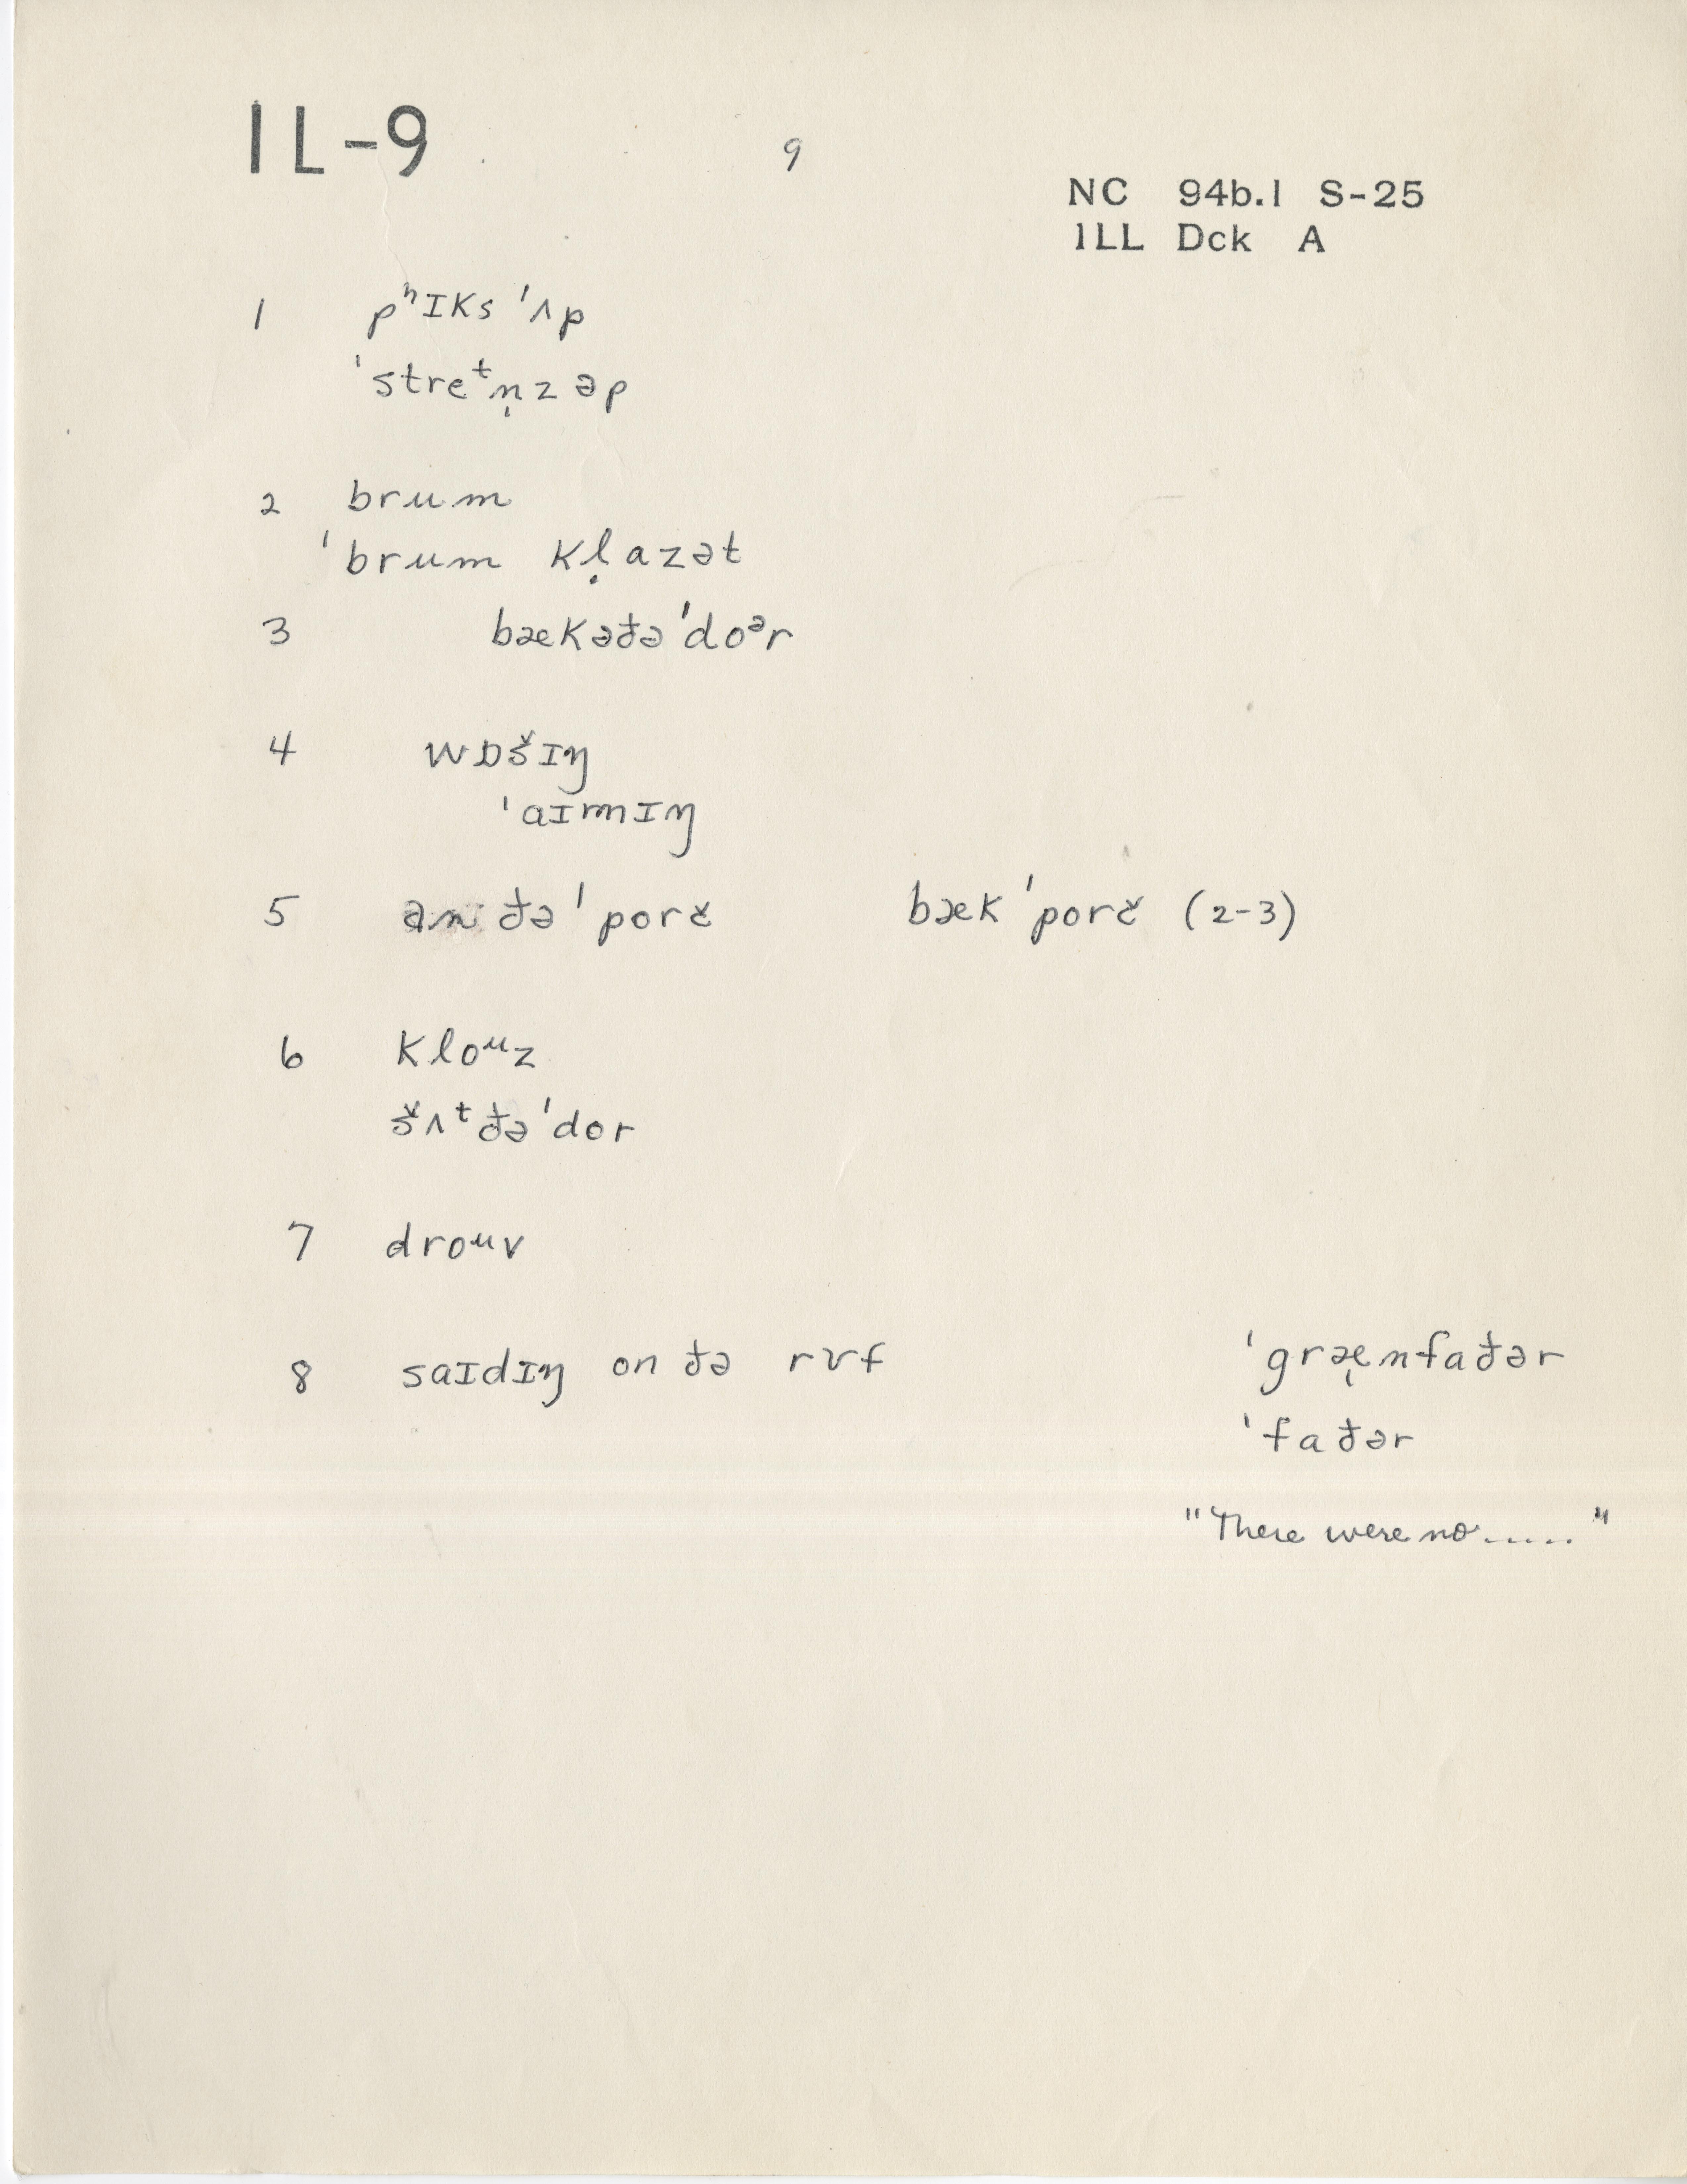 IL-9
9
NC 94b.1 S-25
ILL Dck A
1 pʰɪks ˈʌp
ˈstreᵗn̩z əp
2 brum
ˈbrum kl̩azət
3 bækəðəˈdoᵊr
4 wɒšɪŋ
ˈaɪrnɪŋ
5 ən ðə ˈporč bækˈporč (2-3)
6 kloᵘz
šʌᵗðəˈdor
7 droᵘv
8 saɪdɪŋ on ðə rʊf ˈgræ̨nfaðər
ˈfaðər
"There were no....."